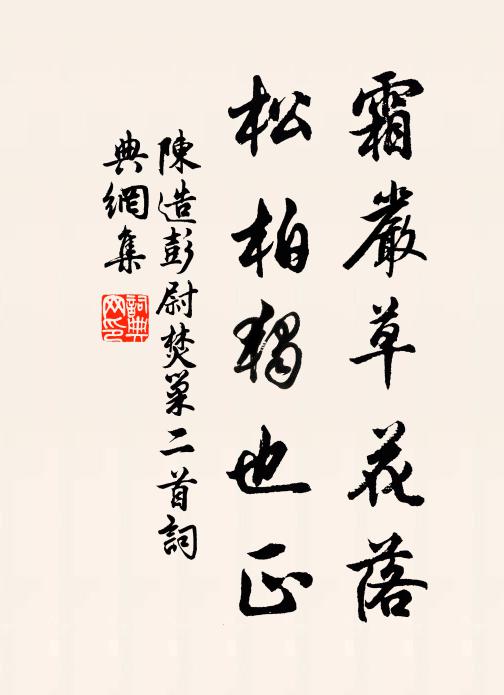 霜嚴草花落
松柏獨也正
陳造彭尉焚巢二首詞
典網集
詞典
网印